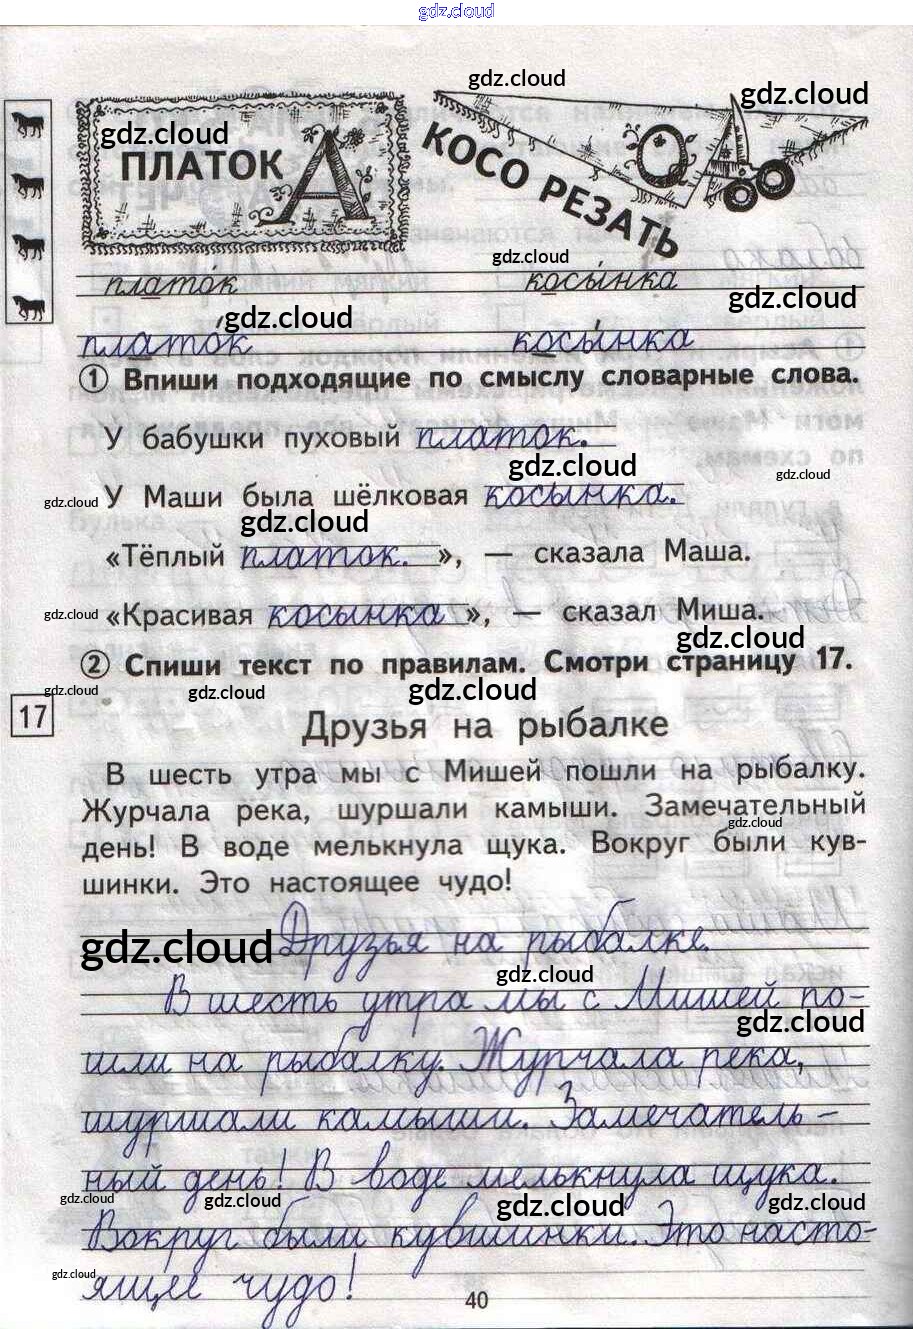 gdz.cloud
gdz.cloud
gdz.cloud
gdz.cloud
ПЛАТОК А
КОСО РЕЗАТЬ
О
gdz.cloud
плато́к косы́нка
gdz.cloud
gdz.cloud
плато́к косы́нка
① Впиши подходящие по смыслу словарные слова.
У бабушки пуховый платок.
gdz.cloud
gdz.cloud
gdz.cloud
У Маши была шёлковая косынка.
gdz.cloud
«Тёплый платок. », — сказала Маша.
gdz.cloud
«Красивая косынка », — сказал Миша.
gdz.cloud
② Спиши текст по правилам. Смотри страницу 17.
gdz.cloud
gdz.cloud
gdz.cloud
17
Друзья на рыбалке
В шесть утра мы с Мишей пошли на рыбалку.
Журчала река, шуршали камыши. Замечательный
gdz.cloud
день! В воде мелькнула щука. Вокруг были кув-
шинки. Это настоящее чудо!
gdz.cloud
Друзья на рыбалке.
gdz.cloud
В шесть утра мы с Мишей по-
gdz.cloud
шли на рыбалку. Журчала река,
шуршали камыши. Замечатель-
ный день! В воде мелькнула щука.
gdz.cloud
gdz.cloud
gdz.cloud
gdz.cloud
Вокруг были кувшинки. Это насто-
gdz.cloud
ящее чудо!
40